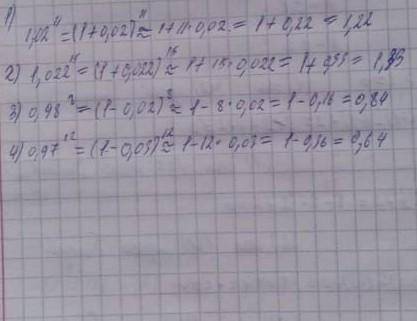 1)
1,02¹¹ = (1+0,02)¹¹ ≈ 1+11·0,02 = 1+0,22 = 1,22
2) 1,022¹⁵ = (1+0,022)¹⁵ ≈ 1+15·0,022 = 1+0,33 = 1,33
3) 0,98⁸ = (1-0,02)⁸ ≈ 1-8·0,02 = 1-0,16 = 0,84
4) 0,97¹² = (1-0,03)¹² ≈ 1-12·0,03 = 1-0,36 = 0,64